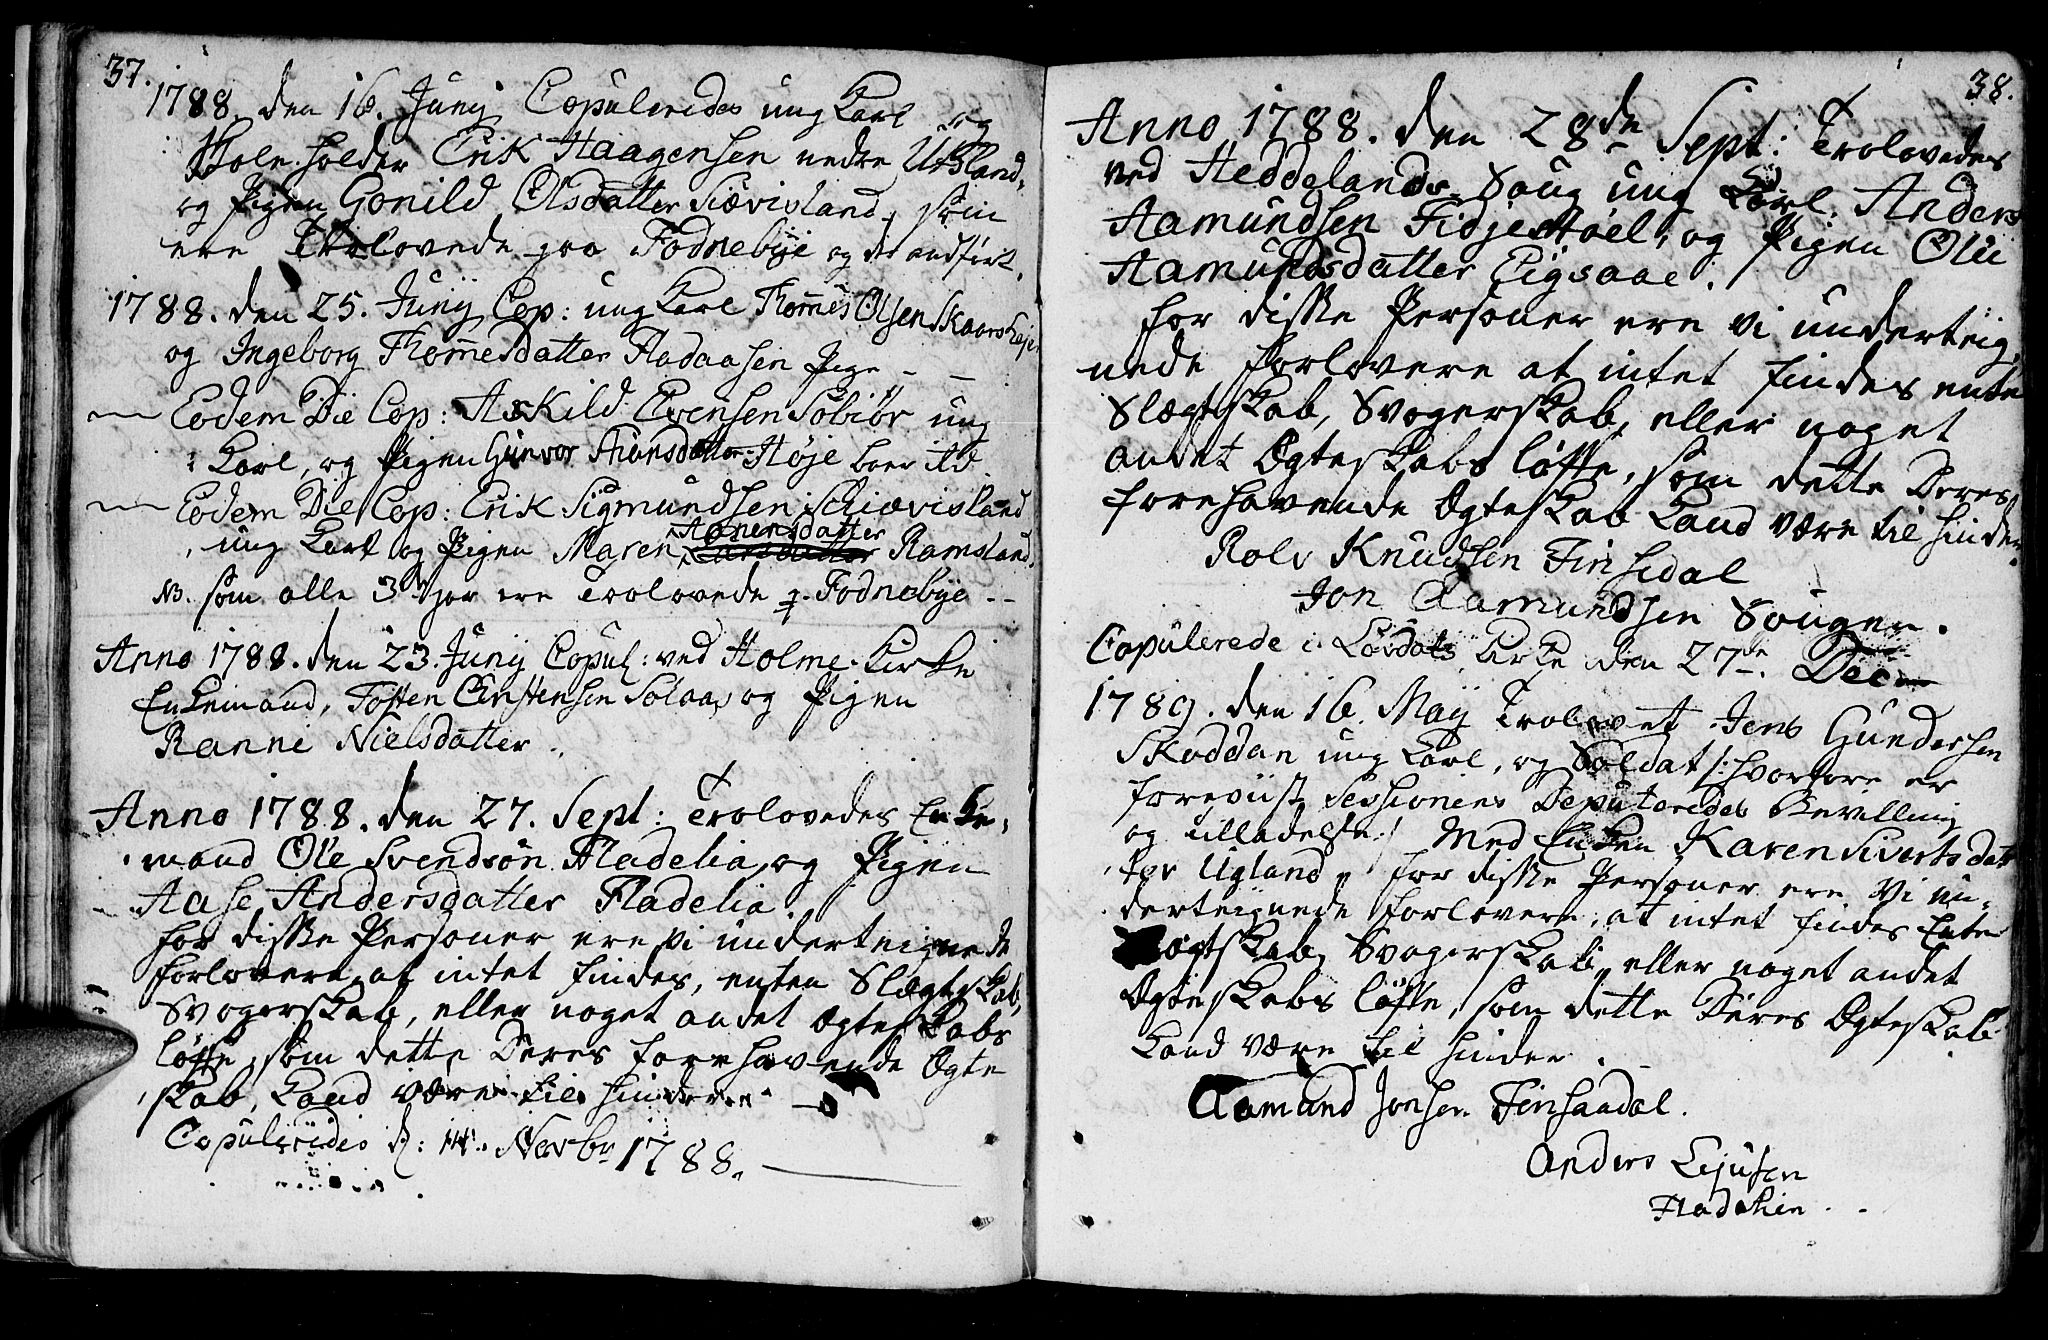 37.
1788. den 16. Junij Copuleredes ung Karl og
Skoleholder Erik Haagensen nedre Udsland,
og Pigen Gonild Olsdatter Siævisland, som
ere Trolovede paa Fodnebÿe og der andført.
1788. den 25. Junij Cop: ung Karl Thomes Olsen
og Ingeborg Thomesdatter Fladaasen Pige - -
Eodem Die Cop: Askild Evensen Søbiør ung
Karl, og Pigen Gunvor Thorsdatter Høje boer ibd.
Eodem Die Cop: Erik Sigmundsen Schiævisland
ung Karl og Pigen Maren Aanensdatter Ramsland.
NB. som alle 3 Par ere Trolovede p. Fodnebÿe - -
Anno 1788. den 23. Junij Copul: ved Holme Kirke
Enkemand, Tosten Solaas og Pigen
Ranni Nielsdatter.
Anno 1788. den 27. Sept: Trolovedes Enke-
mand Ole Svendsøn Fladelia, og Pigen
Aase Andersdatter Fladelia.
For disse Personer ere vi underteignede
forlovere, at intet findes, enten Slægtskab,
Svogerskab, eller noget andet Ægteskabs
løfte, som dette Deres forehavende Ægte
skab, kand være til hinder
Copuleredes d: 14. Novbr 1788.
38.
Anno 1788. den 28de Sept: Trolovedes
ved Heddelands Soug ung Karl: Anders
Aamundsen Fidjestøel, og Pigen Oli
Aamundsdatter Eigsaae.
For disse Personer ere vi underteig,
nede forlovere at intet findes ente
Slægtskab, Svogerskab, eller noget
andet Ægteskabs løfte, som dette Deres
forehavende Ægteskab kand være til hinder.
Rolv Knudsen Finsdal
Jon Aamundsen Sougen.
Copulerede i Løvdals Kirke den 27de. Dec
1789. den 16. Maij Trolovet Jens Gundersen
Skoddan ung Karl, og Soldat /: hvorfore er
foreviist Sessionens Deputeredes Bevilling
og tilladelse:/ Med Enken Karen Sivertsdat
ter Ugland, for disse Personer ere Vi un-
derteignede forlovere, at intet findes Enten
Slægtskab, Svogerskab, eller noget andet
Ægteskabs løfte, som dette Deres Ægteskab
kand være til hinder.
Aamund Jonsen Finsaadal.
Anders